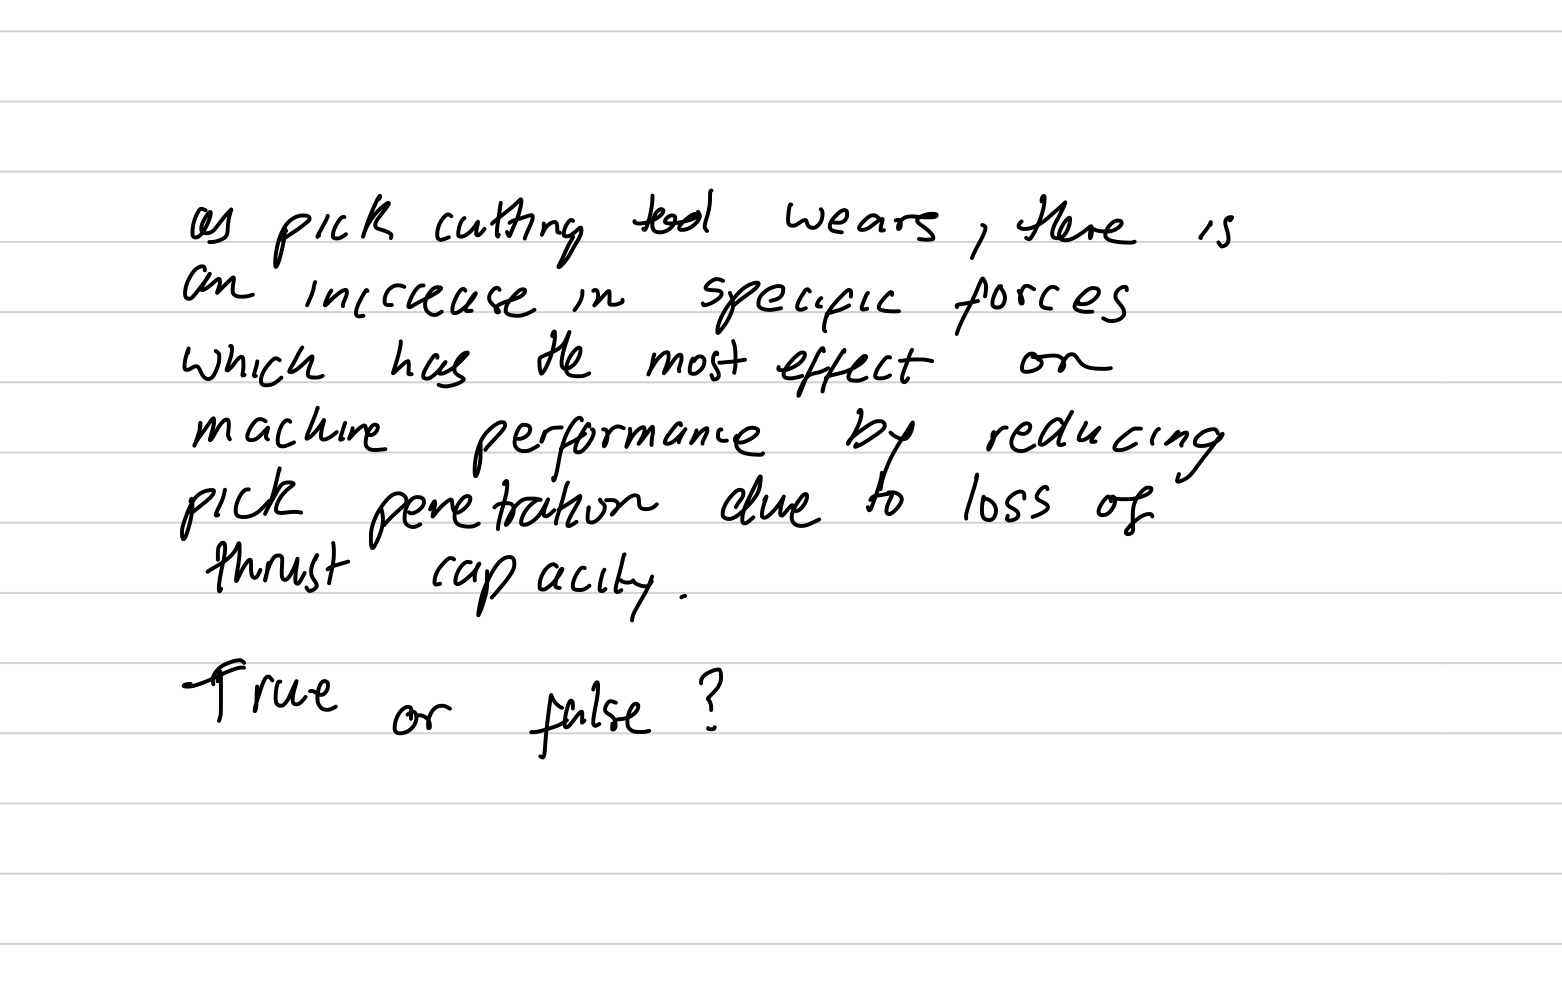 as pick cutting tool wears, there is
an increase in specific forces
which has the most effect on
machine performance by reducing
pick penetration due to loss of
thrust capacity.
True or false?